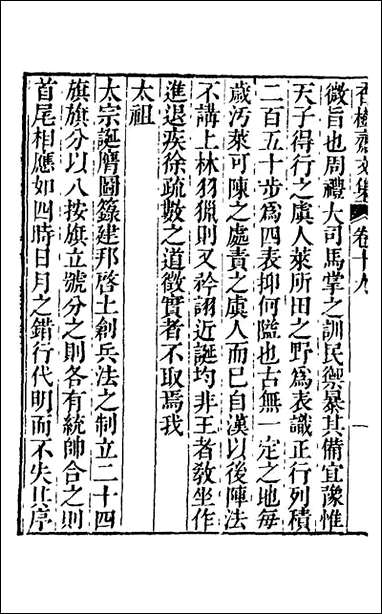 香樹齋文集 卷十九 一
微旨也周禮大司馬掌之訓民禦暴其備宜豫惟
天子得行之虞人萊所田之野爲表識正行列積
二百五十步爲四表抑何隘也古無一定之地每
歲汚萊可陳之處責之虞人而已自漢以後陣法
不講上林羽獵則又衿詡近誕均非王者教坐作
進退疾徐疏數之道徵實者不取焉我
太祖
太宗誕膺圖籙建邦啓土創兵法之制立二十四
旗旗分以八按旗立號分之則各有統帥合之則
首尾相應如四時日月之錯行代明而不失其序